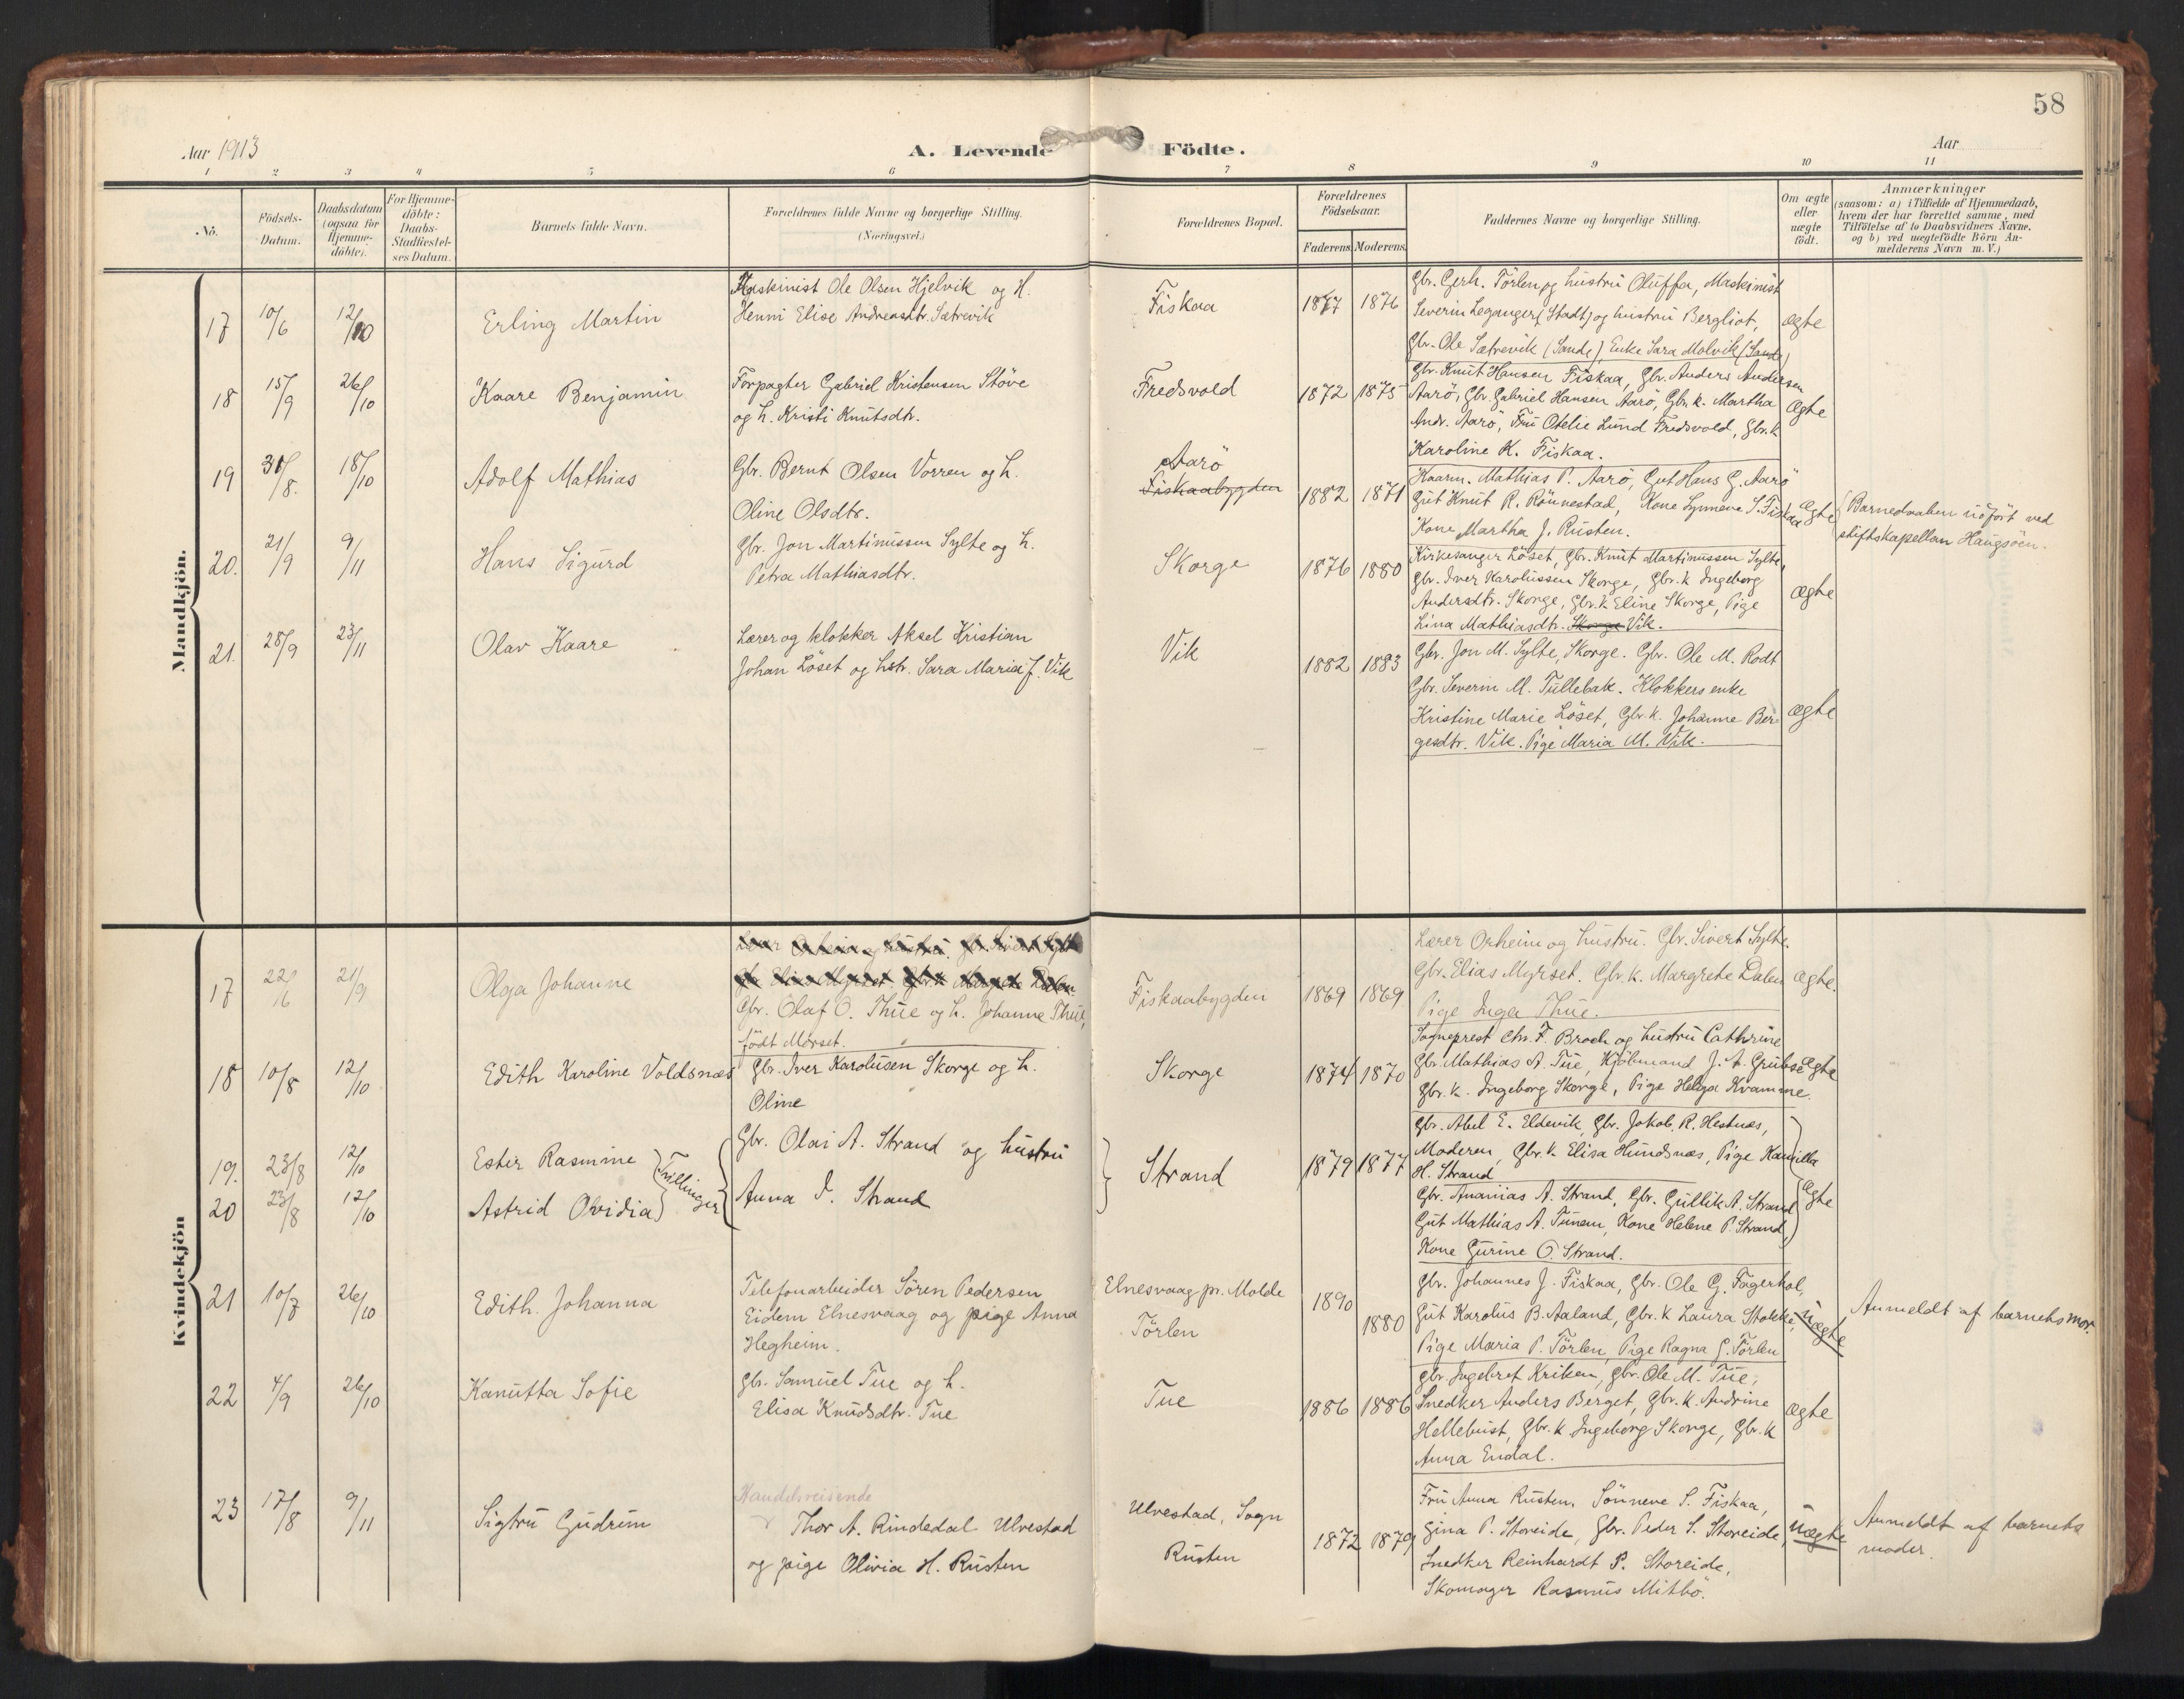 58
Aar 1913
A. Levende Födte.
Aar
1 2 3 4 5 6 7 8 9 10 11
No.
Födsels-Datum.
Daabsdatum (ogsaa for Hjemmedöbte).
For Hjemmedöbte: Daabs-Stadfæstelses Datum.
Barnets fulde Navn.
Forældrenes fulde Navne og borgerlige Stilling.
(Næringsvei.)
Forældrenes Bopæl.
Forældrenes Födselsaar.
Faderens. Moderens.
Faddernes Navne og borgerlige Stilling.
Om ægte eller uægte födt.
Anmærkninger
(saasom: a) i Tilfælde af Hjemmedaab,
hvem der har forrettet samme, med
Tilföielse af to Daabsvidners Navne.
og b) ved uægtefödte Börn An-
melderens Navn m. V.)
Mandkjön.
17 10/6 12/10 Erling Martin
Maskinist Ole Olsen Hjelvik og H.
Henni Elise Andreasdtr. Sætrevik
Fiskaa 1877 1876
Gbr. Gerh. Törlen og hustru Oluffa, Maskinist
Severin Leganger (Stadt) og hustru Bergliot,
Gbr. Ole Sætrevik (Sande), Enke Sara Molvik (Sande)
ægte
18 15/9 26/10 Kaare Benjamin
Forpagter Gabriel Kristensen Stöve
og h. Kristi Knutsdtr.
Fredsvold 1872 1875
Gbr. Knut Hansen Fiskaa, Gbr. Anders Andersen
Aarö, Gbr. Gabriel Hansen Aarö, Gbr. k. Martha
Andr. Aarö, Fru Otelie Lund Fredsvold, Gbr. k
Karoline K. Fiskaa.
Ægte
19 31/8. 18/10 Adolf Mathias
Gbr. Bernt Olsen Vorren og h.
Oline Olsdtr.
Aarö
Fiskaabygden
1882 1871
Kaarm. Mathias P. Aarö, Gut Hans G. Aarö
Gut Knut R. Rönnestad, Kone Synneve S. Fiskaa
Kone Martha J. Rusten.
Ægte
Barnedaaben udfört ved
stiftskapellan Haugsöen.
20. 21/9 9/11 Hans Sigurd
Gbr. Jon Martinussen Sylte og h.
Petra Mathiasdtr.
Skorge 1876 1880
Kirkesanger Löset, Gbr. Knut Martinussen Sylte,
Gbr. Iver Karolussen Skorge, Gbr. k Ingeborg
Andersdtr. Skorge, Gbr. k Eline Skorge, Pige
Lina Mathiasdtr. Skorge Vik.
ægte
21. 28/9 23/11 Olav Kaare
Lærer og klokker Aksel Kristian
Johan Löset og hstr. Sara Maria J. Vik
Vik 1882 1883
Gbr. Jon M. Sylte, Skorge. Gbr. Ole M. Rodt
Gbr. Severin M. Tullebak. Klokkers enke
Kristine Marie Löset, Gbr. k. Johanne Bör-
gesdtr. Vik. Pige Maria M. Vik.
ægte
Kvindekjön
17 22/6 21/9 Olga Johanne
Gbr. Olaf O. Thue og h. Johanne Thue,
födt Mörset.
Fiskaabygden 1869 1869
Lærer Orheim og hustru. Gbr. Sivert Sylte.
Gbr. Elias Myrset. Gbr. k. Margrete Dalen
Pige Inga Thue.
ægte.
18 10/8 12/10 Edith Karoline Voldsnæs
Gbr. Iver Karolusen Skorge og h.
Oline
Skorge 1874 1870
Sogneprest Chr. F. Broch og hustru Cathrine
Gbr. Mathias A. Tue, Kjöbmand J. A. Grubse
Gbr. k. Ingeborg Skorge, Pige Helga Kvamme.
Ægte
19. 23/8 12/10 Ester Rasmine
20 23/8 12/10 Astrid Ovidia
Tvillinger
Gbr. Olai A. Strand og hustru
Anna I. Strand
Strand 1879 1877
Gbr. Abel E. Eldevik, Gbr. Jakob R. Hestnes,
Moderen, Gbr. k Elisa Hundsnæs, Pige Kamilla
H. Strand
Gbr. Ananias A. Strand, Gbr. Gullik A. Strand
Gut Mathias A. Tunem, Kone Helene P. Strand,
Kone Gurine O. Strand.
Ægte
21 10/7 26/10 Edith Johanna
Telefonarbeider Sören Pedersen
Eidem Elnesvaag og pige Anna
Hegheim.
Elnesvaag pr. Molde
Törlen
1890
1880
Gbr. Johannes J. Fiskaa, Gbr. Ole G. Fagerhol,
Gut Karolus B. Aaland, Gbr. k Laura Stokke,
Pige Maria P. Törlen, Pige Ragna G. Törlen
Uægte
Anmeldt af barnets mor.
22 4/9 26/10 Kanutta Sofie
Gbr. Samuel Tue og h.
Elisa Knudsdtr. Tue
Tue 1886 1886
Gbr. Ingebret Kriken, Gbr. Ole M. Tue,
Snedker Anders Berget, Gbr. k. Andrine
Hellebust, Gbr. k. Ingeborg Skorge, Gbr. k
Anna Endal.
ægte
23 17/8 9/11 Sigtru Gudrun
Handelsreisende
Thor A. Rindedal Ulvestad
og pige Olivia H. Rusten
Ulvestad, Sogn
Rusten
1872 1879
Fru Anna Rusten. Sönneve S. Fiskaa,
Gina P. Storeide, Gbr. Peder S. Storeide,
Snedker Reinhardt P. Storeide,
Skomager Rasmus Mitbö.
Uægte
Anmeldt af barnets
moder.